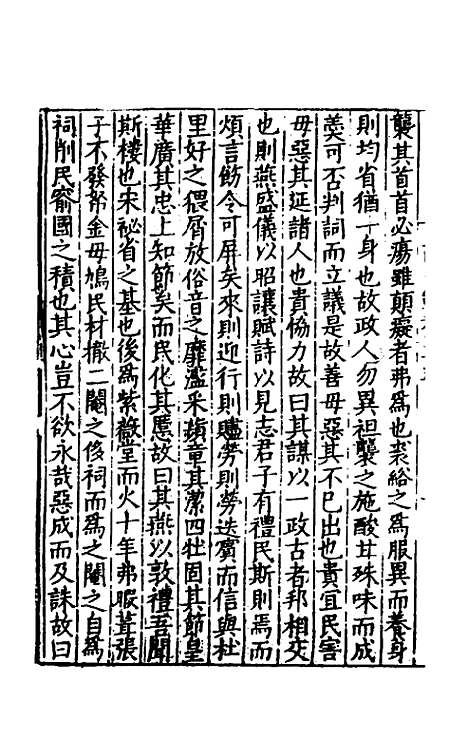 襲其首首必瘍雖顛癡者弗爲也裘綌之爲服異而養身
則均省猶一身也故政人勿異袒襲之施酸甘殊味而成
羮可否判詞而立議是故善毋惡其不已出也貴宜民害
毋惡其延諸人也貴協力故曰其謀以一政古者邦相交
也則燕盛儀以昭讓賦詩以見志君子有禮民斯則焉而
煩言飭令可屏矣來則迎行則贐勞則勞迭賓而信與杜
里好之猥屑放俗音之靡濫采蘋章其潔四牡固其節皇
華廣其忠上知節矣而民化其慝故曰其燕以敦禮吾聞
斯樓也宋祕省之基也後爲紫薇堂而火十年弗暇葺張
子不發帑金毋鳩民材撤二閹之佞祠而爲之閹之自爲
祠削民窬國之積也其心豈不欲永哉惡成而及誅故曰